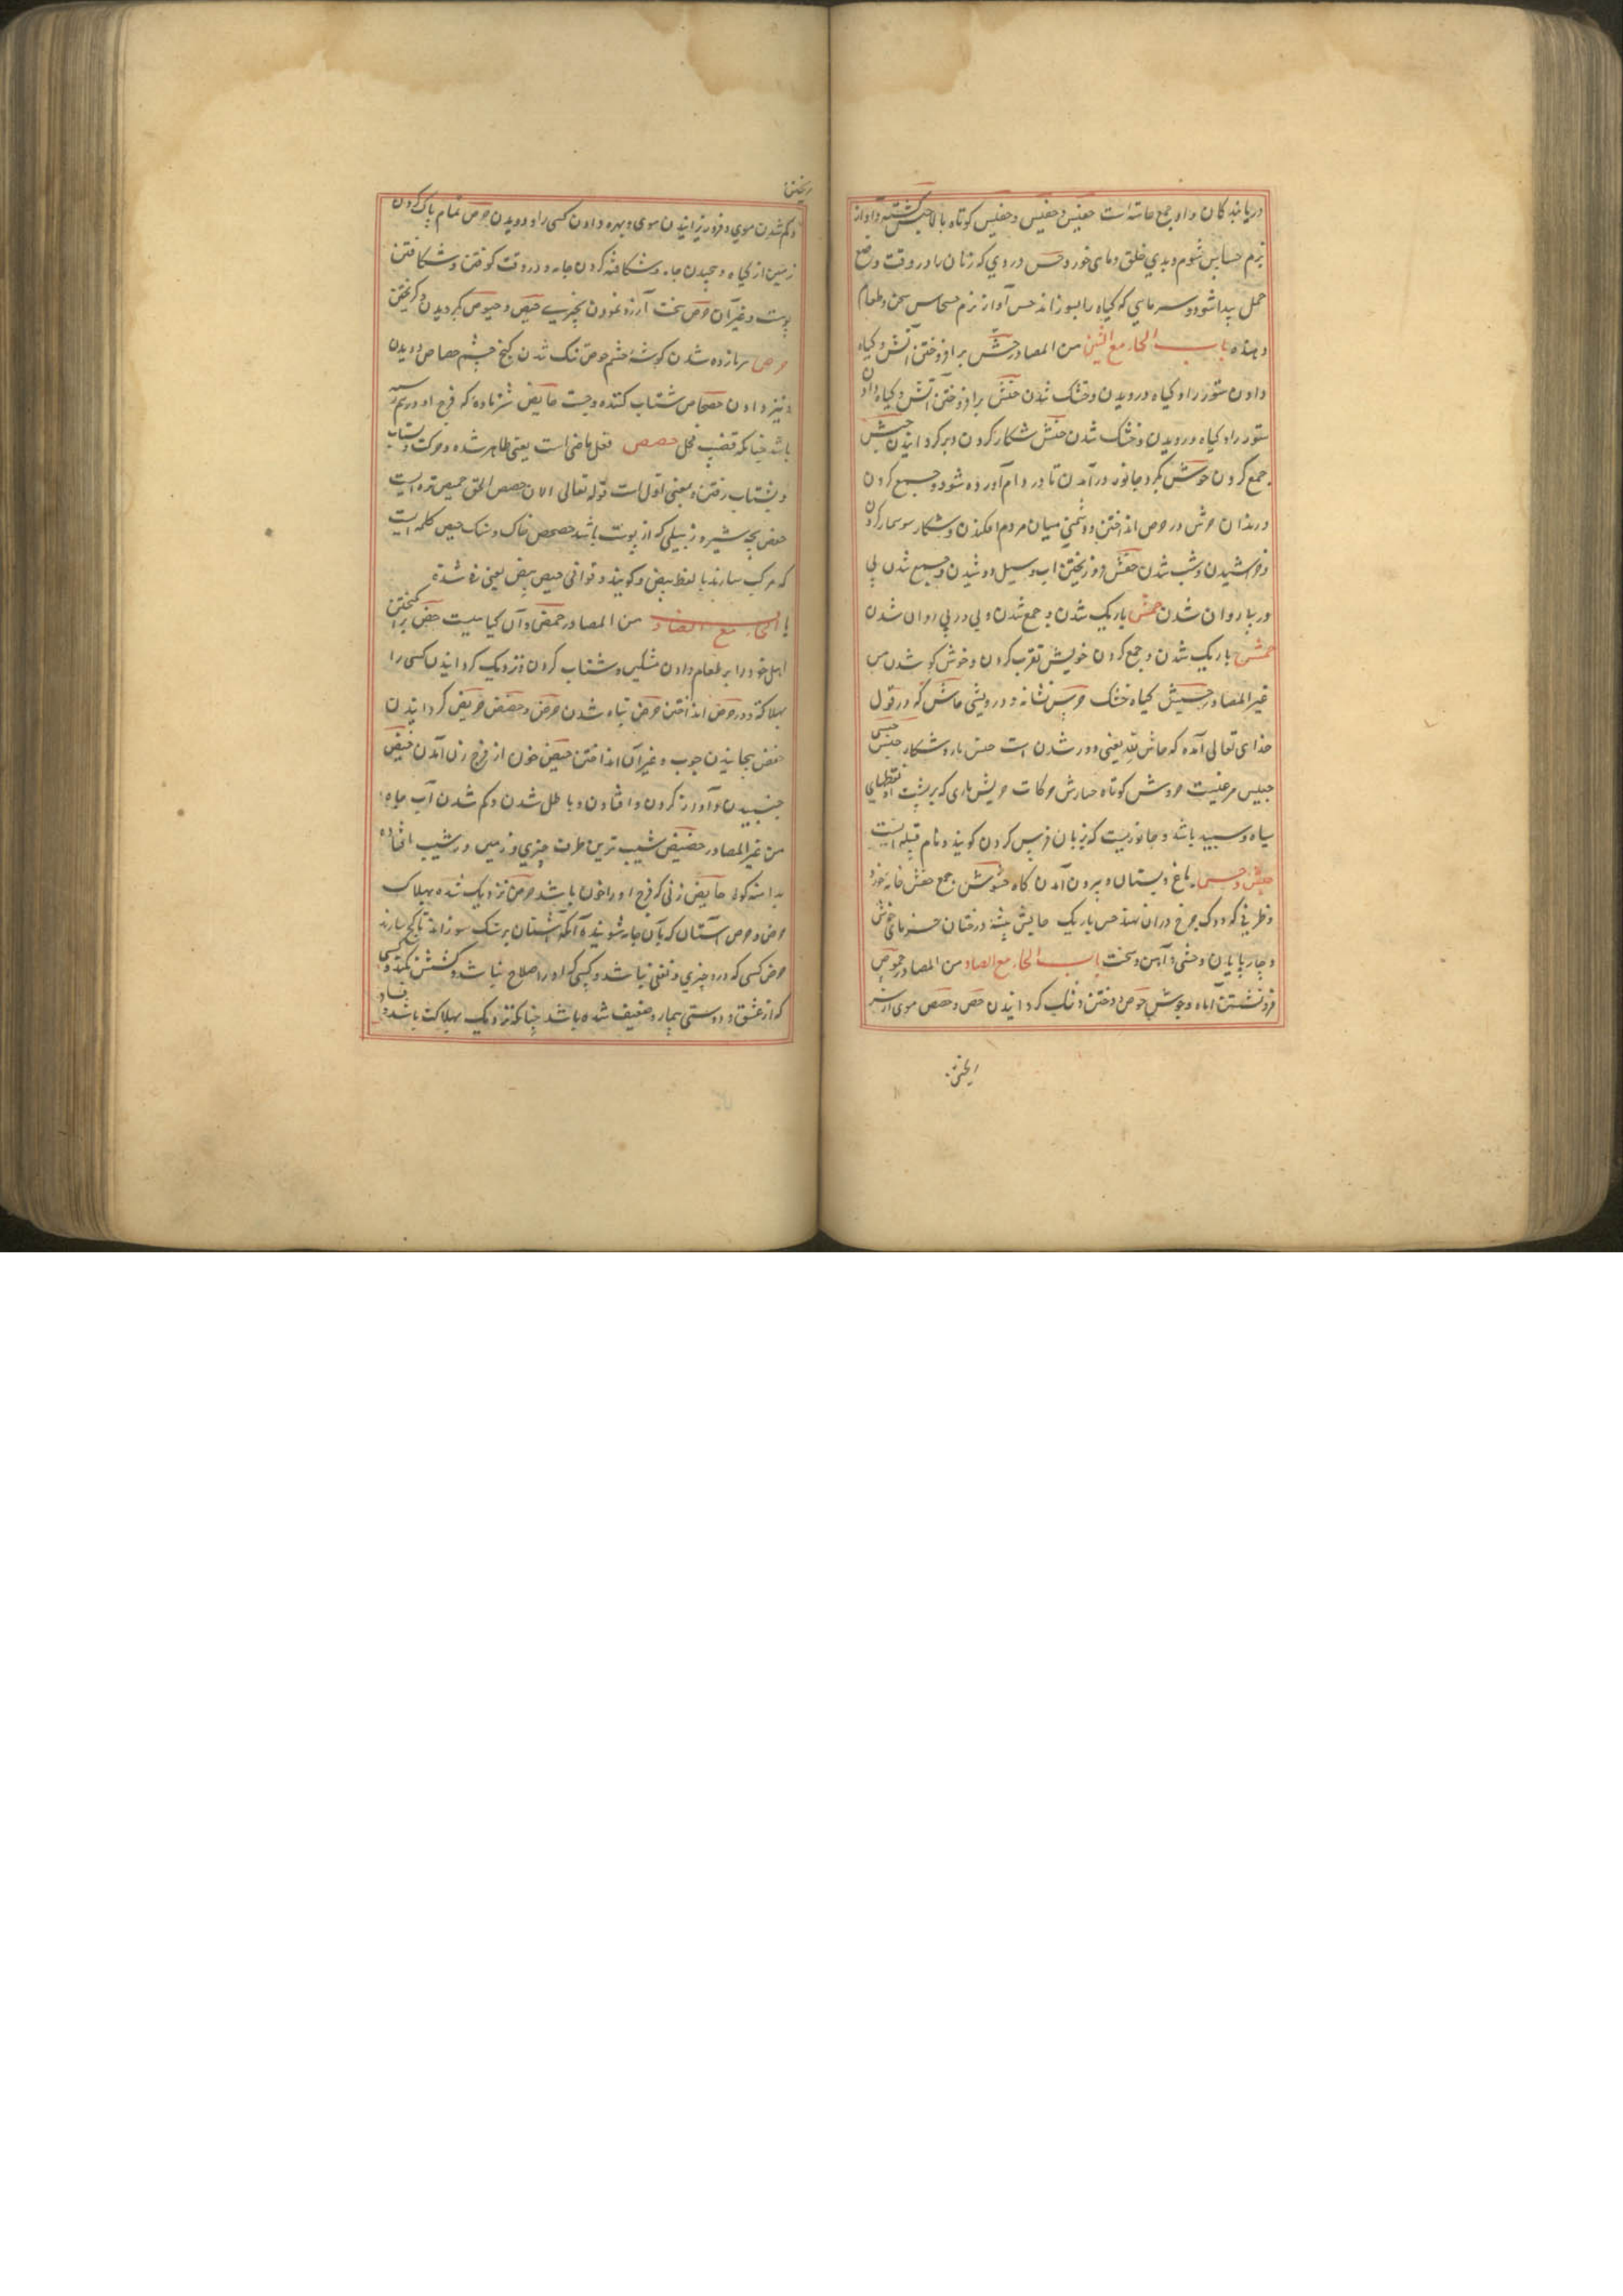 دریابند کان و او جمع حاسّه است حفیس و حفیس کوتاه بالا و آواز
نرم حساس شوم و بدی خلق و ماهی خورد و حس دردی که زنان را در وقت وضع
حمل پیدا شود و سرمایی که کیاه را بسوزاند حس آواز نرم سخن و طعام
دهنده باب الحاء مع الشین من المصادر حش برافروختن آتش و کیاه
دادن ستور را و کیاه درویدن و خشک شدن حش برافروختن آتش و کیاه دادن
ستور را و کیاه درویدن و خشک شدن حنش شکار کردن و برکردانیدن حبش
جمع کردن حوش بکرد جانور درآمدن تا در دام آورده شود و جمع کردن
و راندن حرش در حرص انداختن و دشمنی میان مردم افکندن و شکار سوسمار کردن
و خراشیدن و شب شدن حفش فرو ریختن آب و سیل و دوشیدن و جمع شدن پی
در پی روان شدن حمش باریک شدن و جمع شدن و پی در پی روان شدن
حمش باریک شدن و جمع کردن خویش تقرب کردن و خوش کو شدن من
غیر المصادر حشیش کیاه خشک نشانه و درویشی حاش که در قول
خدای تعالی آمده که حاش لله یعنی دور شدن است حنش مار و شکار
مرغیست حروش کوتاه حرکات حریش ماری که بر پشت او نقطهای
سیاه و سپید باشد و جانوریست که بزبان فرس کردن کویند و نام قبیله ایست
باغ و بستان و بیرون آمدن کاه حشوش جمع حفش خانه خورد
و ظرفی که دوک چرخ در آن نهند حمش باریک حایش بیشه درختان خرمای خوش
و چارپایان وحشی و آهن و سخت باب الحاء مع الصاد من المصادر حموص
فرو نشستن آماه و جوش حوص دوختن و تنک کردانیدن حص و حصص موی از سر
ریختن
ریختن
و کم شدن موی و فرو ریزانیدن موی و بهره دادن کسی را و دویدن حرص تمام پاک کردن
زمین از کیاه و پیچیدن جامه و شکافته کردن جامه در وقت کوفتن و شکافتن
پوست و غیر آن حرص سخت آرزو نمودن بچیزی حیص و حیوص بکردیدن و کریختن
سر باز زده شدن کوشه چشم حوص تنک شدن کنج چشم حصاص دویدن
و تیز دادن حصحاص شتاب کننده و چست حایض شتر ماده که فرج او درهم رسته
باشد چنانکه قضیب فحل حصحص فعل ماضی است یعنی ظاهر شده و حرکت و شتاب
و بشتاب رفتن و بمعنی اول است قوله تعالی الآن حصحص الحق حمیص تره ایست
حفص بچه شیر و زنبیلی که از پوست باشد حصحص خاک و سنک حیص کلمه ایست
که مرکب سازند با لفظ بیص و کویند وقع فی حیص بیص یعنی فی شدة
باب الحاء مع الضاد من المصادر حمض و آن کیاهیست حض برانکیختن
اهل خود را بر طعام دادن مسکین و شتاب کردن و نزدیک کردانیدن کسی را
بهلاکت و در حوض انداختن حرض تباه شدن حرض و حضض تحریض کردانیدن
حفض بجنبانیدن چوب و غیر آن انداختن حیض خون از فرج زن آمدن حبض
جنبیدن و آواز کردن و افتادن و باطل شدن و کم شدن آب چاه
من غیر المصادر حضیض نشیب ترین طرف چیزی و زمین در شیب افتاده
بدامنه کوه حایض زنی که فرج او را خون باشد حرض نزدیک شده بهلاک
حرض و حرض اشنان که بآن جامه شویند و آنکه اشنان بر سنک سوزاند تا کچ سازند
حرض کسی که درو چیزی و نفعی نباشد و کسی که او را صلاح نباشد
که از عشق و دوستی بیمار و ضعیف شده باشد چنانکه نزدیک بهلاکت باشد و فساد